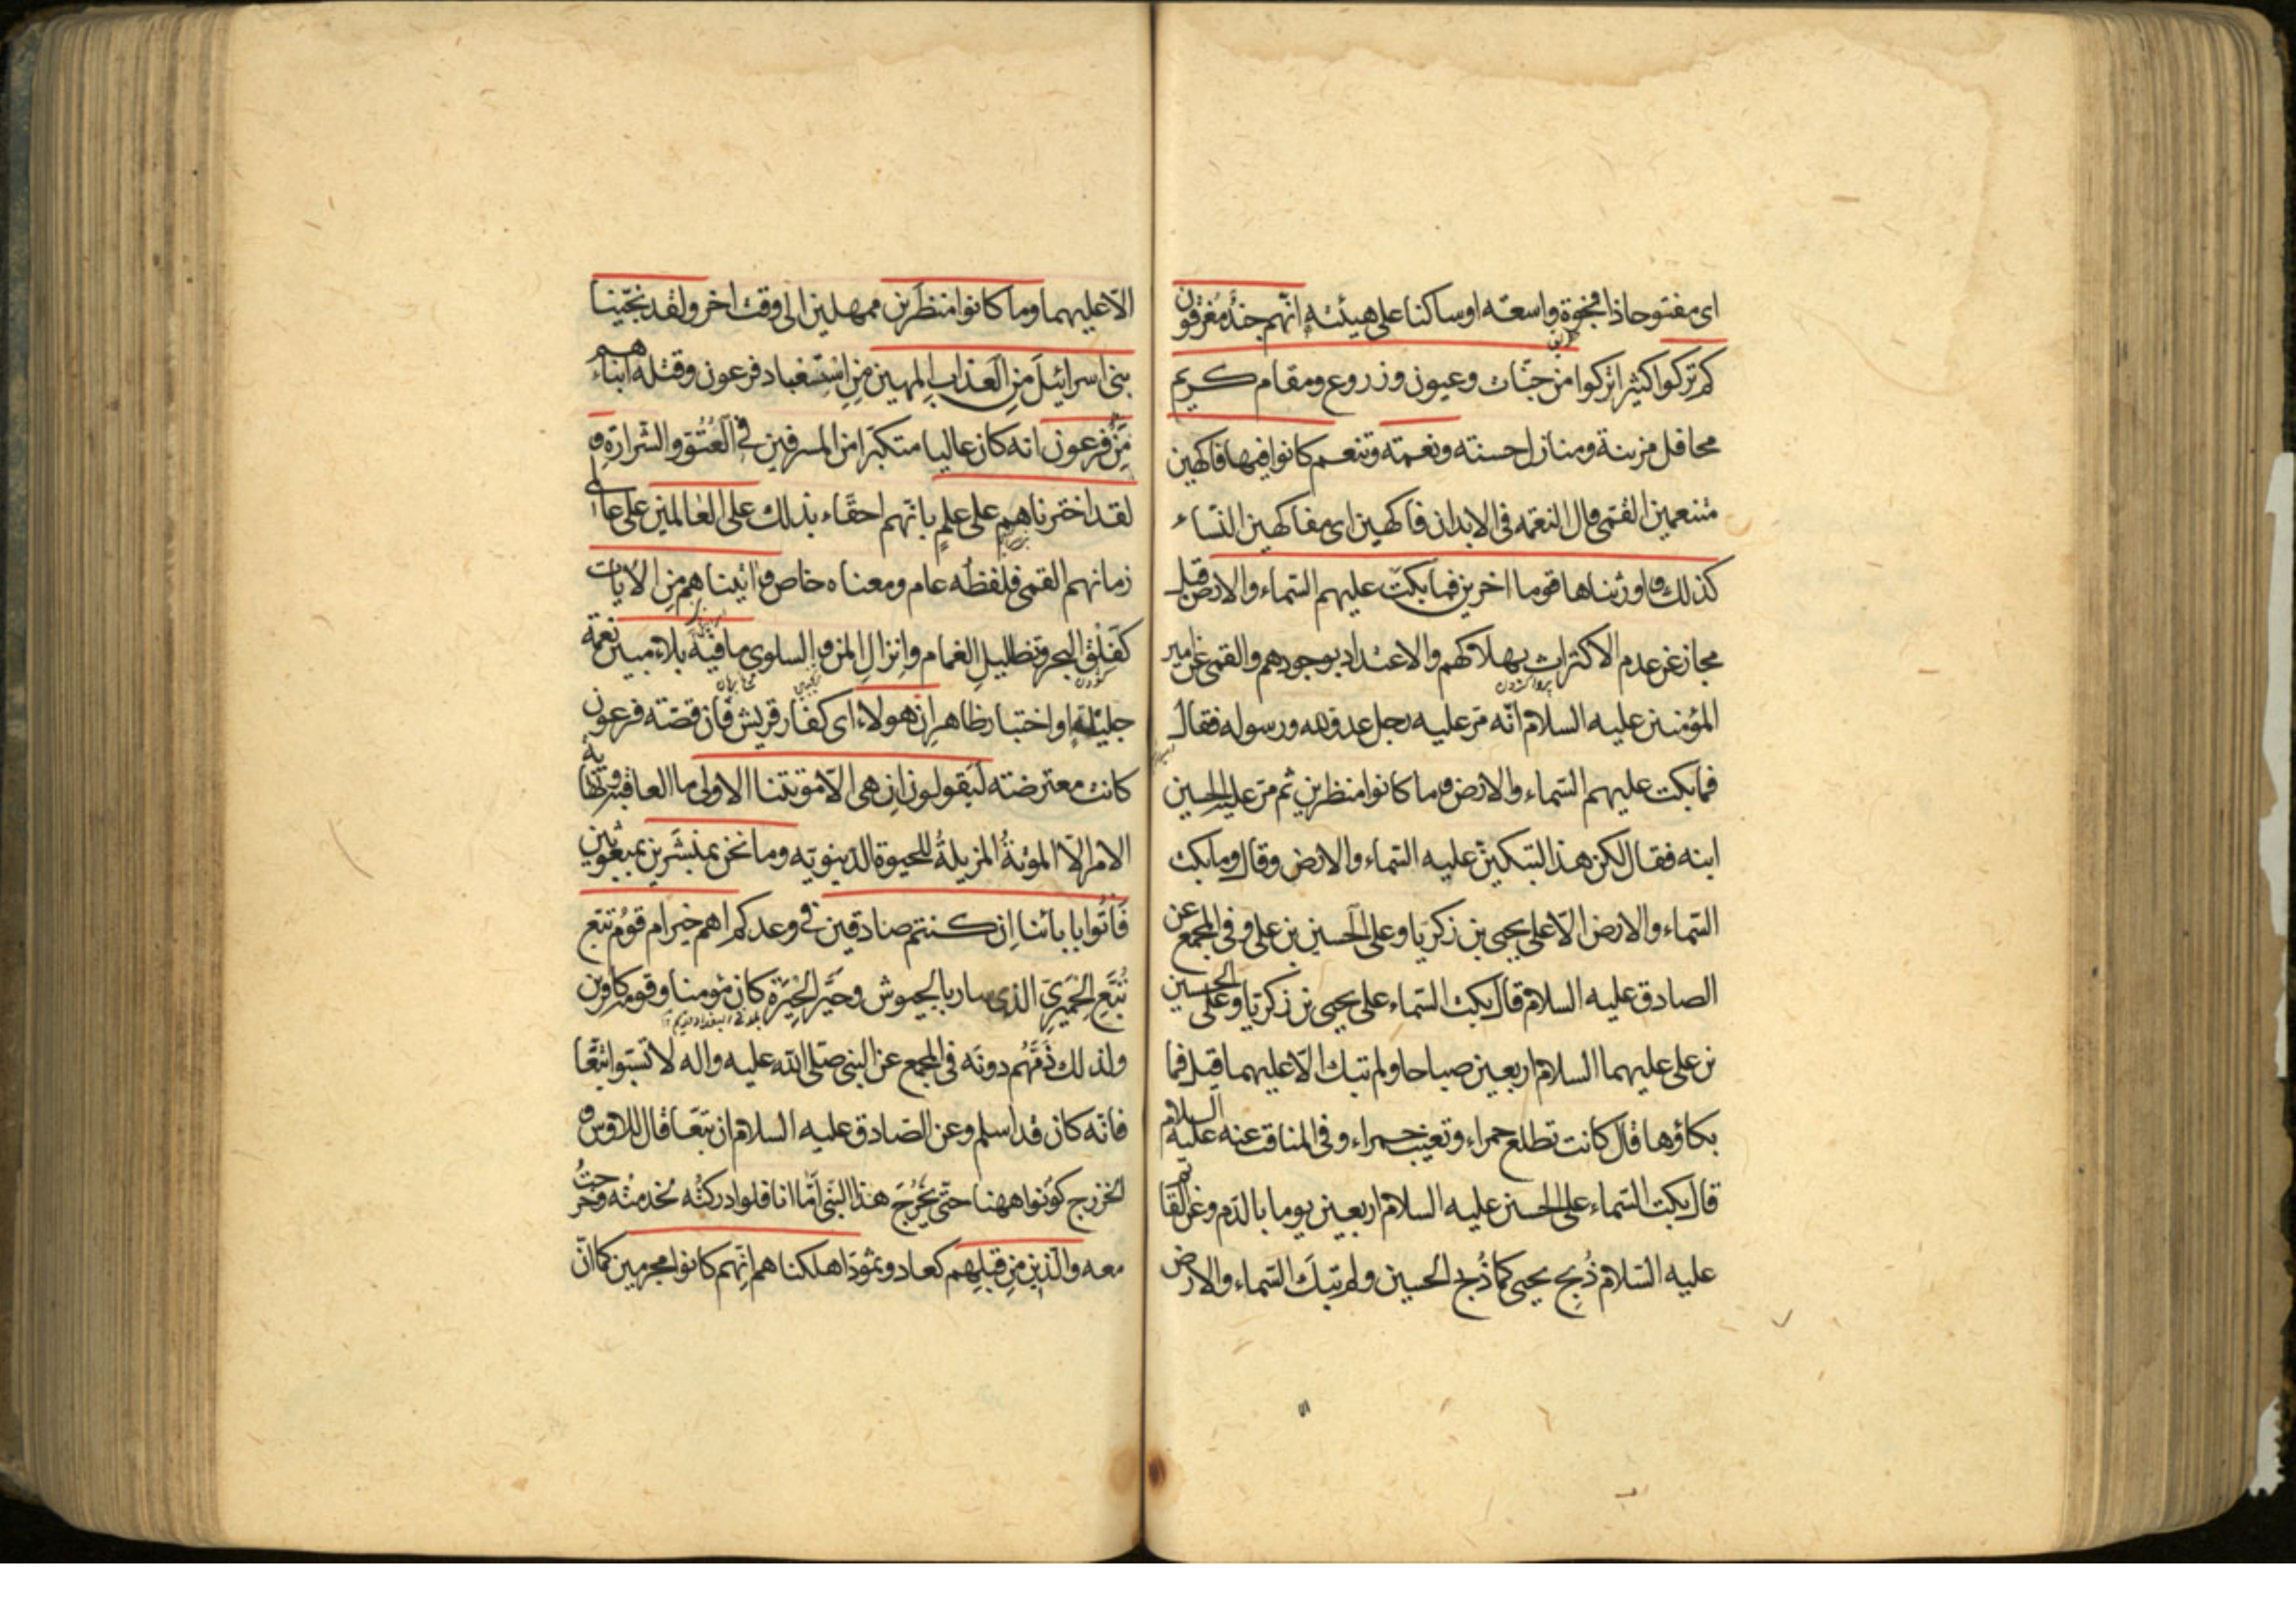 اى مفتوحا ذا فجوة واسعة او ساكنا على هيئته انّهم جند مغرقون
كم تركوا كثيرا تركوا من جنّات وعيون وزروع ومقام كريم
محافل مزينة ومنازل حسنة ونعمة وتنعم كانوا فيها فاكهين
متنعمين القمى قال النعمة فى الابدان فاكهين اى مفاكهين النساء
كذلك واورثناها قوما اخرين فما بكت عليهم السّماء والارض قيل
مجاز عن عدم الاكتراث بهلاكهم والاعتداد بوجودهم والقمى عن امير
المؤمنين عليه السلام انّه مرّ عليه رجل عدوّ لله ورسوله فقال
فما بكت عليهم السّماء والارض وما كانوا منظرين ثم مرّ عليه الحسين
ابنه فقال لكن هذا لتبكينّ عليه السّماء والارض وقال وما بكت
السّماء والارض الّا على يحيى بن زكريّا وعلى الحسين بن على وفى المجمع عن
الصادق عليه السلام قال بكت السّماء على يحيى بن زكريّا وعلى الحسين
بن على عليهما السلام اربعين صباحا ولم تبك الّا عليهما قيل فما
بكاؤها قال كانت تطلع حمراء وتغيب حمراء وفى المناقب عنه عليه السلام
قال بكت السّماء على الحسين عليه السلام اربعين يوما بالدّم وعن القائم
عليه السّلام ذُبِح يحيى كما ذُبح الحسين ولم تبك السّماء والارض
الّا عليهما وما كانوا منظرين ممهلين الى وقت اخر ولقد نجّينا
بنى اسرائيل من العذاب المهين من استعباد فرعون وقتله ابناءهم
من فرعون انه كان عاليا متكبّرا من المسرفين فى العتوّ والشرارة و
لقد اخترناهم على علم بانّهم احقّاء بذلك على العالمين على عالمى
زمانهم القمى فلفظه عام ومعناه خاص واتيناهم من الايات
كفلق البحر وتظليل الغمام وانزال المن والسلوى ما فيه بلاء مبين نعمة
جليلة او اختبار ظاهر ان هولاء اى كفار قريش فان قصّة فرعون
كانت معترضة ليقولون ان هى الّا موتتنا الاولى ما العاقبة ونهاية
الامر الّا الموتة المزيلة للحيوة الدّنيويّه وما نحن بمنشَرين بمبعوثين
فَاتُوا بابائنا اِن كنتم صادقين فى وعدكم اهم خير ام قوم تبّع
تُبَّع الحِميَرى الذى سار بالجيوش وحَيَّر الحِيَرة كان مؤمنا وقومه كافرين
ولذلك ذمّهم دونه فى المجمع عن النبى صلى الله عليه واله لا تسبّوا تبّعا
فانّه كان قد اسلم وعن الصّادق عليه السلام ان تبّعا قال للاوس و
الخزرج كونوا ههنا حتّى يَخرُجَ هذا النبى امّا انا فلو ادركتُه لخدمته وخرجتُ
معه والّذين من قبلهم كعاد وثمود اهلكناهم انّهم كانوا مجرمين كما انّ